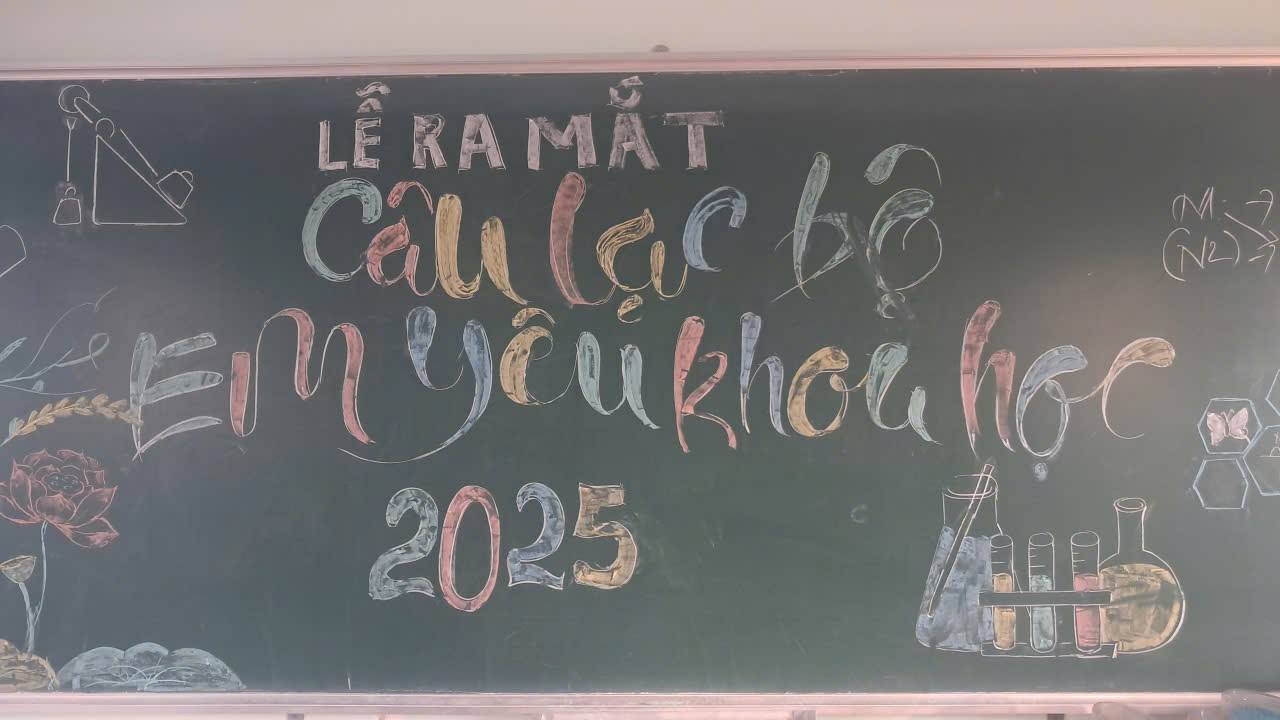 LỄ RA MẮT
Câu lạc bộ
Em yêu khoa học
2025
(N1
(N2)